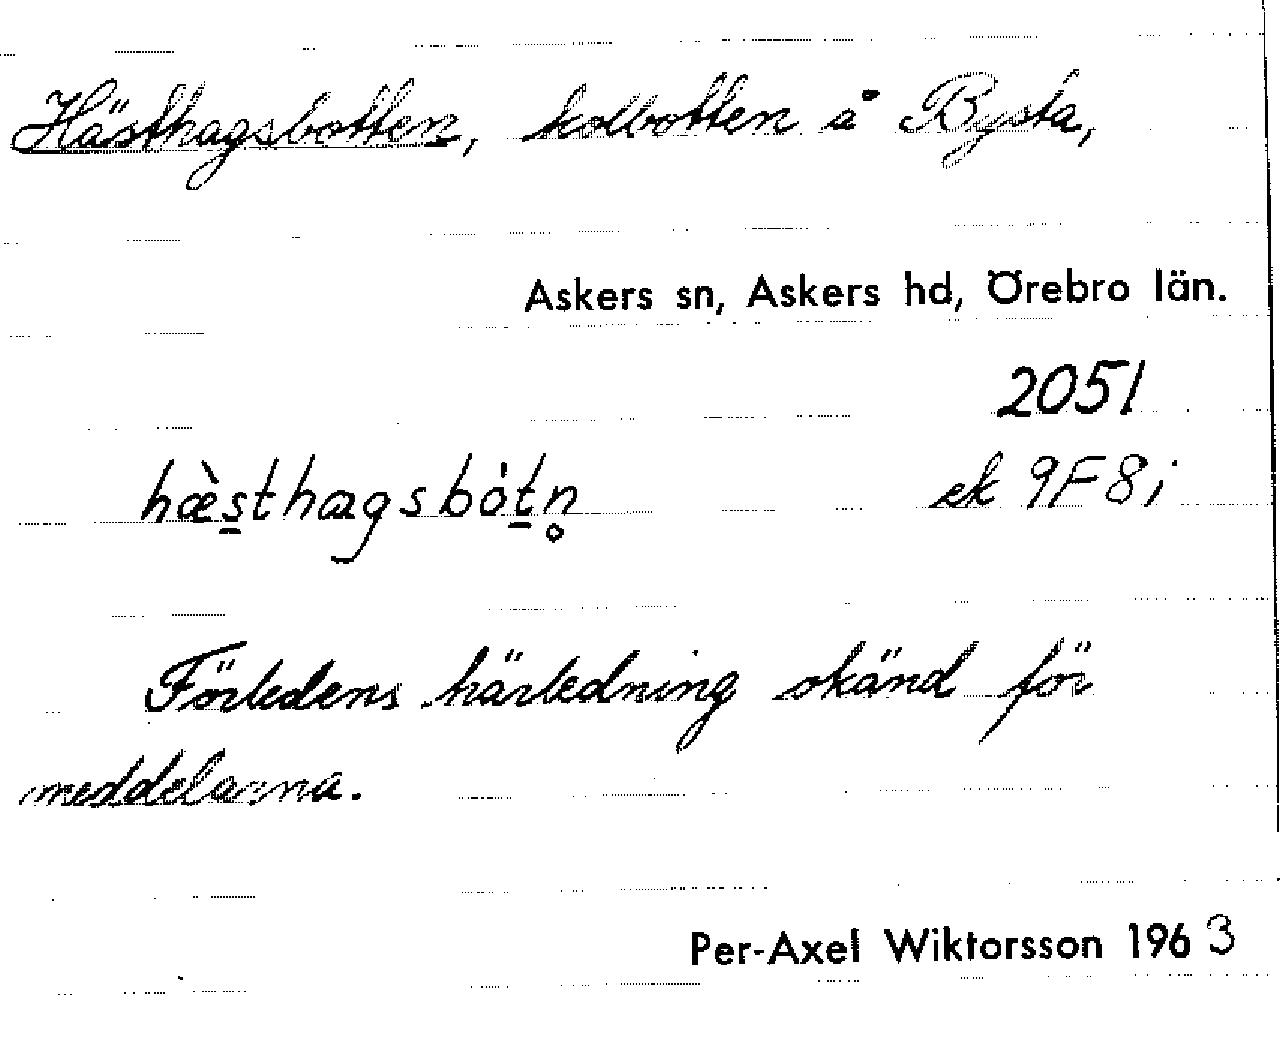 Hästhagsbotten, kolbotten å Bysta,
Askers sn, Askers hd, Örebro län.
2051
hæ̀s̲thagsbȯt̲n̥ ek 9F8i
Förledens härledning okänd för
meddelarna.
Per-Axel Wiktorsson 1963